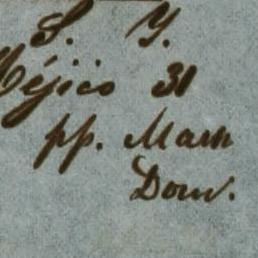 S. Y.
Méjico 31
pp. Mark
Dom.